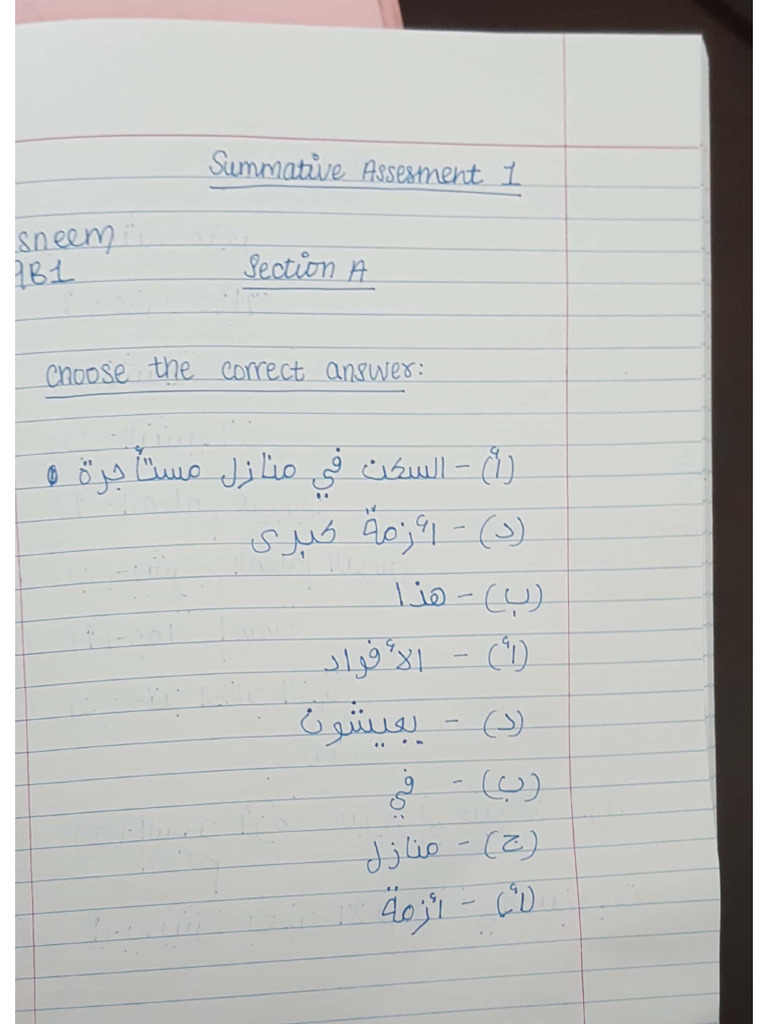 Summative Assesment 1
sneem
9B1 Section A
Choose the correct answer:
(أ) - السكن في منازل مستأجرة
(د) - أزمة كبرى
(ب) - هذا
(أ) - الأفواد
(د) - يعيشون
(ب) - في
(ج) - منازل
(أ) - أزمة